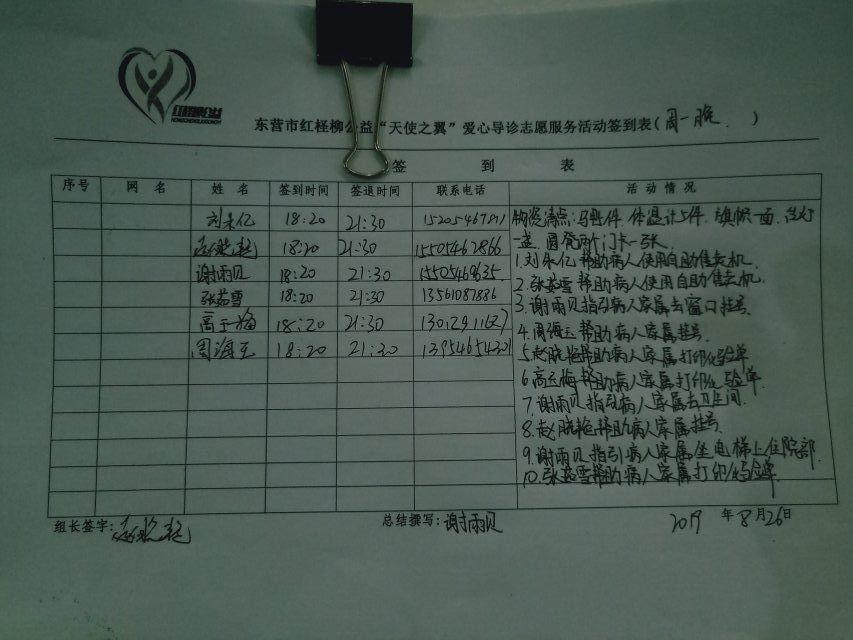 东营市红柽柳公益“天使之翼”爱心导诊志愿服务活动签到表(周一晚)
签 到 表
序号 网 名 姓 名 签到时间 签退时间 联系电话 活 动 情 况
18:20 21:30 15205467811
18:20 21:30 15505462866
谢雨贝 18:20 21:30 15505469635
张益雪 18:20 21:30 13561087886
高玉梅 18:20 21:30
周海玉 18:20 21:30 13954654301
物资清点:马甲 件. 体温计5件. 旗帜一面. 台灯
一盏. 门卡一张.
1. 帮助病人使用自助售卖机.
2. 张益雪帮助病人使用自助售卖机.
3. 谢雨贝指引病人家属去窗口挂号
4. 周海玉帮助病人家属挂号.
5. 赵晓艳帮助病人家属打印化验单
6. 高玉梅帮助病人家属打印化验单.
7. 谢雨贝指引病人家属去卫生间.
8. 赵晓艳帮助病人家属挂号.
9. 谢雨贝指引病人家属坐电梯上住院部.
10. 张益雪帮助病人家属打印化验单
组长签字: 总结撰写:谢雨贝 2019 年 8 月 26日